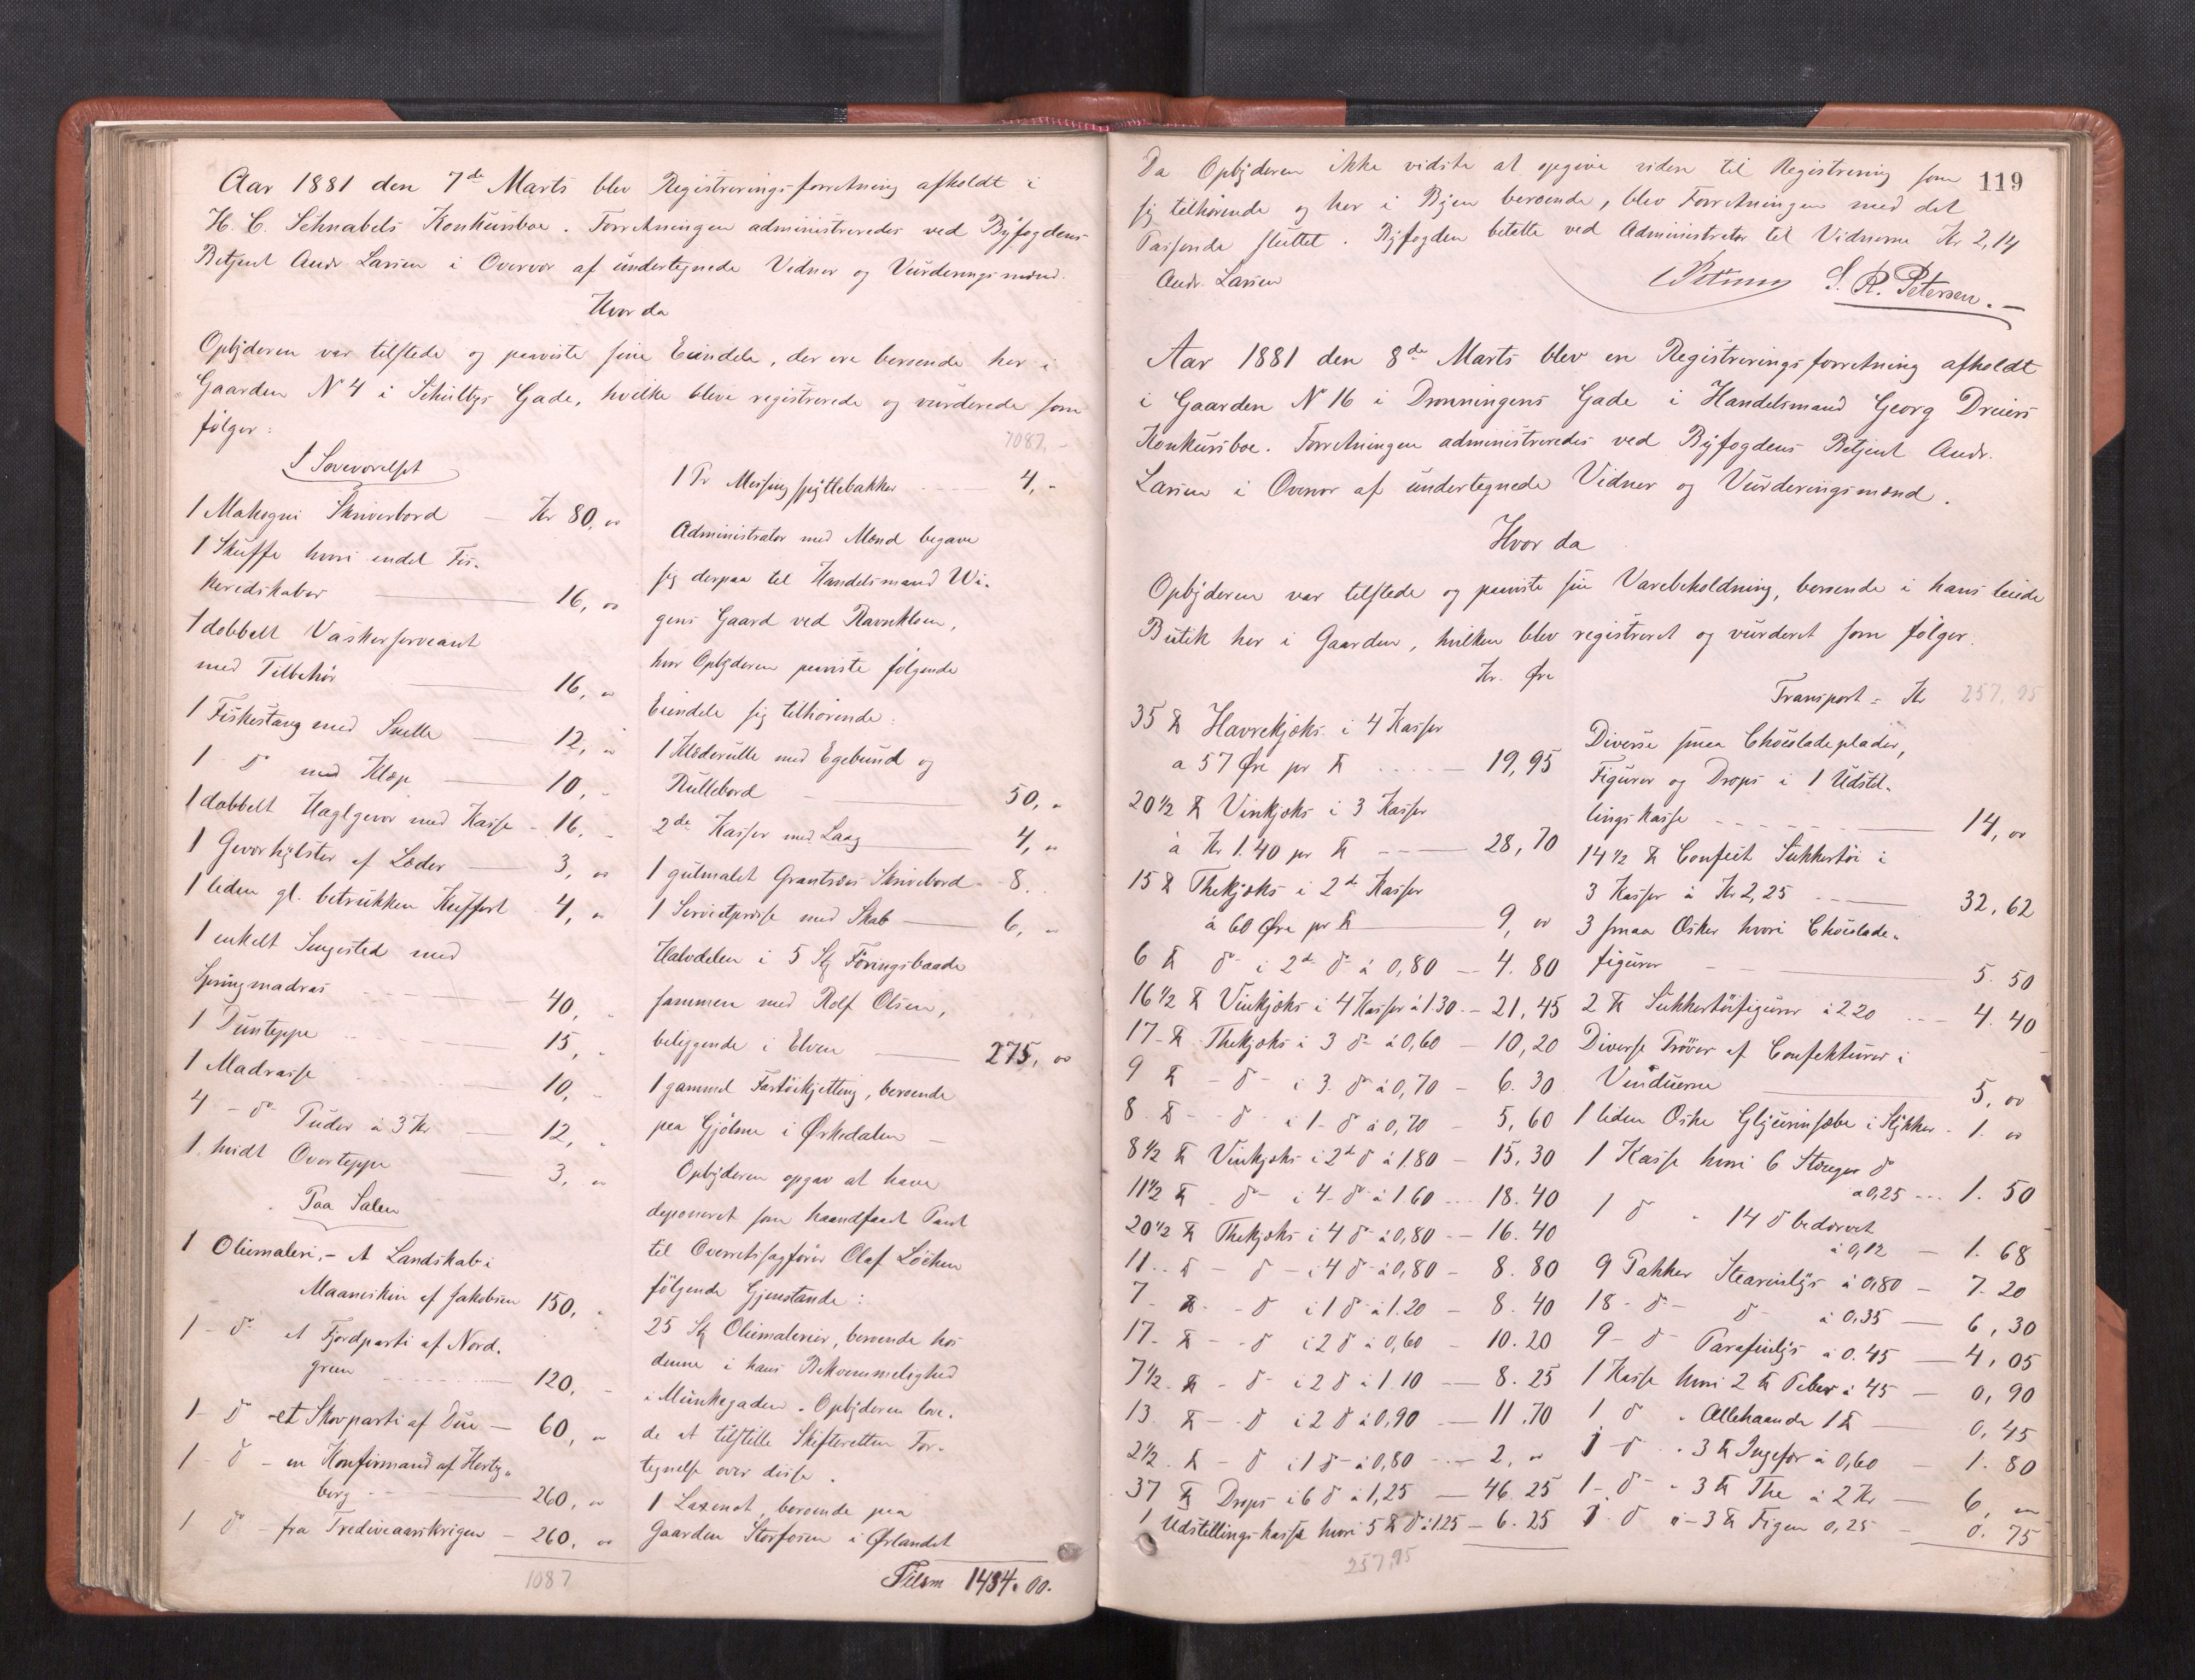 Aar 1881 den 7de Marts blev Registreringsforretning afholdt i
H. C. Schnabels Konkursboe. Forretningen administreredes ved Byfogdens
Betjent Andr. Larsen i Overvær af undertegnede Vidner og Vurderingsmænd.
Hvor da
Opbyderen var tilstede og paaviste sine Eiendele, der ere beroende her i
Gaarden N 4 i Schultzs Gade, hvilke bleve registrerede og vurderede som
følger:
I Soveværelset
1 Mahogni Skriverbord — Kr 80, 00
1 Skuffe hvori endel Fis-
keredskaber — 16, 00
1 dobbelt Vaskerservant
med Tilbehør — 16, "
1 Fiskestang med Snelle — 12, "
1 do med Klep — 10, -
1 dobbelt Haglgevær med Kasse - 16, -
1 Geværhylster af Læder — 3, 00
1 liden gl. betrukken Kuffert - 4, "
1 enkelt Sengested med
Springmadras — 40, -
1 Dunteppe — 15, -
1 Madrasse — 10, -
4 - do Puder à 3 Kr — 12, "
1 hvidt Overteppe — 3, "
Paa Salen
1 Oliemaleri, - et Landskab i
Maaneskin af Jakobsen 150, -
1 - do et Fjordparti af Nord-
gren — 120, -
1 - do - et Skovparti af Due — 60, "
1 - do - en Konfirmand af Hertz-
berg — 260, "
1 do - fra Trediveaarskrigen — 260, 00
1087
7087, -
1 Pr Messing spyttebakker — 4, -
Administrator med Mænd begave
sig derpaa til Handelsmand Wi-
gens Gaard ved Ravnkloen,
hvor Opbyderen paaviste følgende
Eiendele sig tilhørende:
1 Klæderulle med Egebund og
Rullebord — 50, "
2de Kasser med Laag — 4, "
1 gulmalet Grantræes Skrivebord - 8.
1 Servietpresse med Skab — 6, "
Halvdelen i 5 Stk Føringsbaade
sammen med Rolf Olsen,
beliggende i Elven — 275, 00
1 gammel Fartøikjetting, beroende
paa Gjølme i Ørkedalen —
Opbyderen opgav at have
deponeret som haandfaaet Pant
til Overretssagfører Olaf Løchen
følgende Gjenstande:
25 Stk Oliemalerier, beroende hos
denne i hans Bekvemmelighed
i Munkegaden. Opbyderen love-
de at tilstille Skifteretten For-
tegnelse over disse.
1 beroende paa
Gaarden Storfosen i Ørlandet
Tilsm 1434. 00.
119
Da Opbyderen ikke vidste at opgive videre til Registrering som
sig tilhørende og her i Byen beroende, blev Forretningen med det
Passerede sluttet. Byfogden betalte ved Administrator til Vidnerne Kr 2,14
Andr. Larsen
S. R. Petersen. —
Aar 1881 den 8de Marts blev en Registreringsforretning afholdt
i Gaarden N 16 i Dronningens Gade i Handelsmand Georg Dreiers
Konkursboe. Forretningen administreredes ved Byfogdens Betjent Andr.
Larsen i Overvær af undertegnede Vidner og Vurderingsmænd.
Hvor da
Opbyderen var tilstede og paaviste sin Varebeholdning, beroende i hans leiede
Butik her i Gaarden, hvilken blev registreret og vurderet som følger.
Kr. Øre
35 ℔ Havrekjæks i 4 Kasser
a 57 Øre pr ℔ — 19,95
20 1/2 ℔ Vinkjæks i 3 Kasser
à Kr 1.40 pr ℔ — 28,70
15 ℔ Thekjæks i 2de Kasser
à 60 Øre pr ℔ — 9, 00
6 ℔ do i 2de do à 0,80 — 4. 80
16 1/2 ℔ Vinkjæks i 4 Kasser à 1.30 - 21,45
17 - ℔ Thekjæks i 3 do à 0,60 - 10,20
9 ℔ - do - i 3 do à 0,70 - 6. 30
8 ℔ - do - i 1 - do à 0,70 - 5, 60
8 1/2 ℔ Vinkjæks i 2de do à 1.80 - 15,30
11 1/2 ℔ - do - i 4 - do à 1.60 - 18. 40
20 1/2 ℔ Thekjæks i 4 do à 0,80 - 16. 40
11 - ℔ - do - i 4 do à 0,80 - 8. 80
7 - ℔ - do i 1 do à 1.20 - 8. 40
17 - ℔ - do i 2 do à 0,60 - 10. 20
7 1/2 - ℔ - do - i 2 do à 1.10 — 8. 25
13 ℔ - do i 2 do à 0,90 — 11.70
2 1/2 - ℔ - do i 1 do à 0,80 — 2, "
37 ℔ Drops i 6 do à 1,25 — 46. 25
1 Udstillingskasse hvori 5 ℔ do à 1.25 - 6. 25
257,95
Transport = Kr 257,95
Diverse smaa Chocoladeplader,
Figurer og Drops i 1 Udstil-
lingskasse — 14, 00
14 1/2 ℔ Confect Sukkertøi i
3 Kasser à Kr 2,25 — 32,62
3 smaa Æsker hvori Chocolade-
figurer — 5. 50
2 ℔ Sukkertøifigurer à 2.20 — 4. 40
Diverse Prøver af Confekturer i
Vinduerne — 5, 00
1 liden Æske Glycerinsæbe i Stykker - 1. "
1 Kasse hvori 6 Stænger do
à 0,25 — 1. 50
1 do " 14 do bedærvet
à 0,12 — 1. 68
9 Pakker Stearinlys à 0,80 — 7. 20
18 - do - do - à 0,35 — 6, 30
9 - do - Parafinlys à 0.45 — 4, 05
1 Kasse hvori 2 ℔ Peber à 45 — 0, 90
1 do " Allehaande 1 ℔ — 0, 45
1 - do " 3 ℔ Ingefær à 0,60 — 1. 80
1 - do " 3 ℔ The à 2 Kr — 6, "
1 - do " 3 ℔ Figen 0,25 — 0. 75